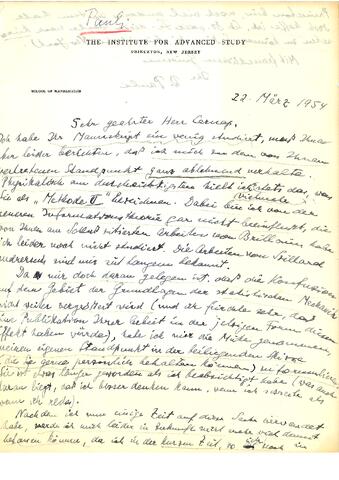 Pauli
THE INSTITUTE FOR ADVANCED STUDY
PRINCETON, NEW JERSEY
SCHOOL OF MATHEMATICS
22. März 1954
Sehr geehrter Herr Carnap,
Ich habe Ihr Manuskript ein wenig studiert, muß Ihnen
aber leider berichten, daß ich mich zu dem von Ihnen
vertretenen Standpunkt ganz ablehnend verhalte.
Physikalisch am durchsichtigsten bleibt vielmehr stets das, was
Sie als „Methode II" bezeichnen. Dabei bin ich von der
neueren Informationstheorie gar nicht beeinflusst, die
von Ihnen am Schluss zitierten Arbeiten von Brillouin habe
ich leider noch nicht studiert. Die Arbeiten von Szillard
andrerseits sind mir seit langem bekannt.
Da mir doch daran gelegen ist, daß die Konfusion
auf dem Gebiet der Grundlagen der statistischen Mechanik
nicht weiter vergrössert wird (und ich fürchte sehr, daß
eine Publikation Ihrer Arbeit in der jetzigen Form diesen
Effekt haben würde), habe ich mir die Mühe genommen,
meinen eigenen Standpunkt in der beiliegenden Skizze
(die Sie gerne persönlich behalten können) zu formulieren.
Sie ist etwas länger geworden als ich beabsichtigt habe (was auch
daran liegt, daß ich besser denken kann, wenn ich schreibe als
wenn ich rede).
Nachdem ich nun einige Zeit auf diese Sache verwendet
habe, werde ich mich leider in Zukunft nicht mehr viel damit
befassen können, da ich in der kurzen Zeit, wo ich noch in